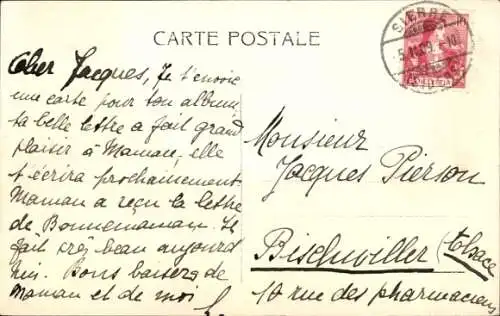 CARTE POSTALE
SIERRE
Cher Jacques, Je t'envoie
une carte pour ton album
ta belle lettre a fait grand
plaisir à Maman, elle
t'écrira prochainement
Maman a reçu la lettre
de Bonnemaman. Il
fait très beau aujourd
hui. Bons baisers de
Maman et de moi
Monsieur
Jacques Pierson
Bischwiller (Alsace
10 rue des pharmaciens